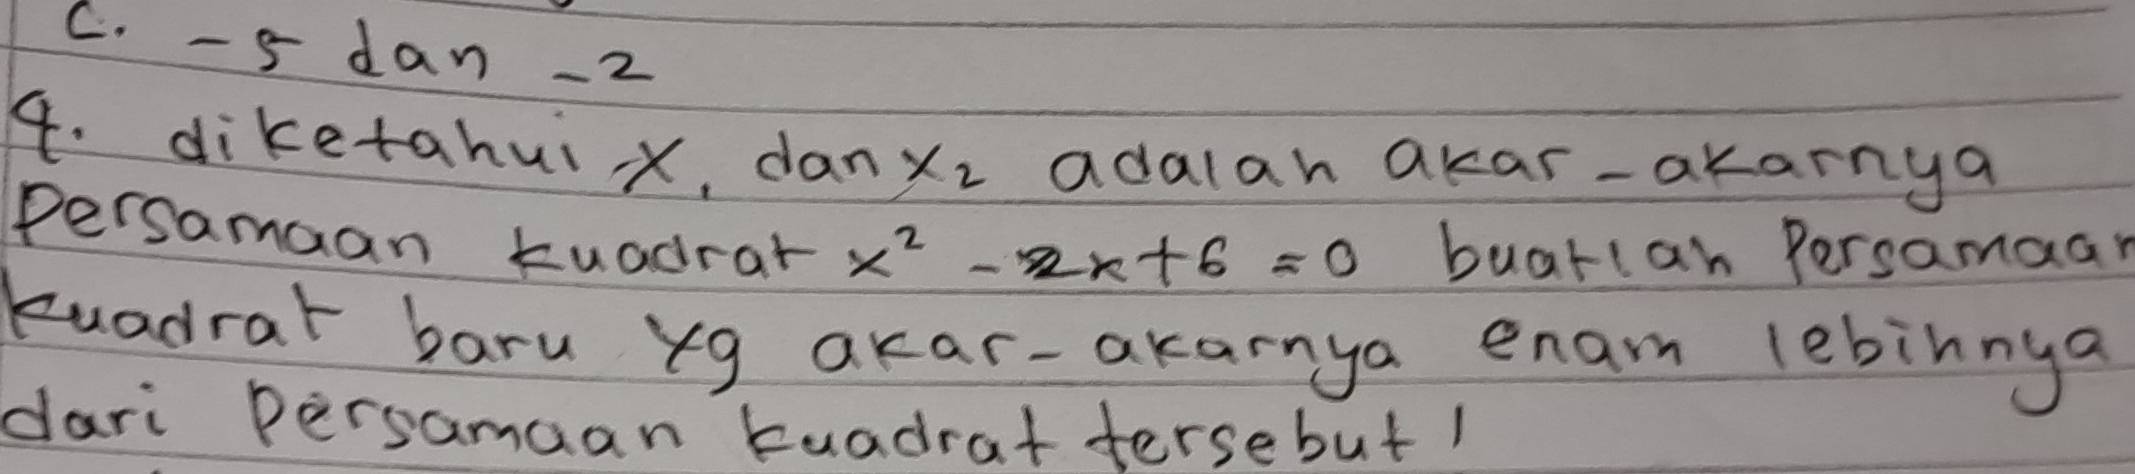 C. -5 dan -2
4. diketahui x₁ dan x₂ adalah akar-akarnya
Persamaan kuadrat x² - 2x + 6 = 0 buatlah Persamaan
kuadrat baru yg akar-akarnya enam lebihnya
dari Persamaan kuadrat tersebut!